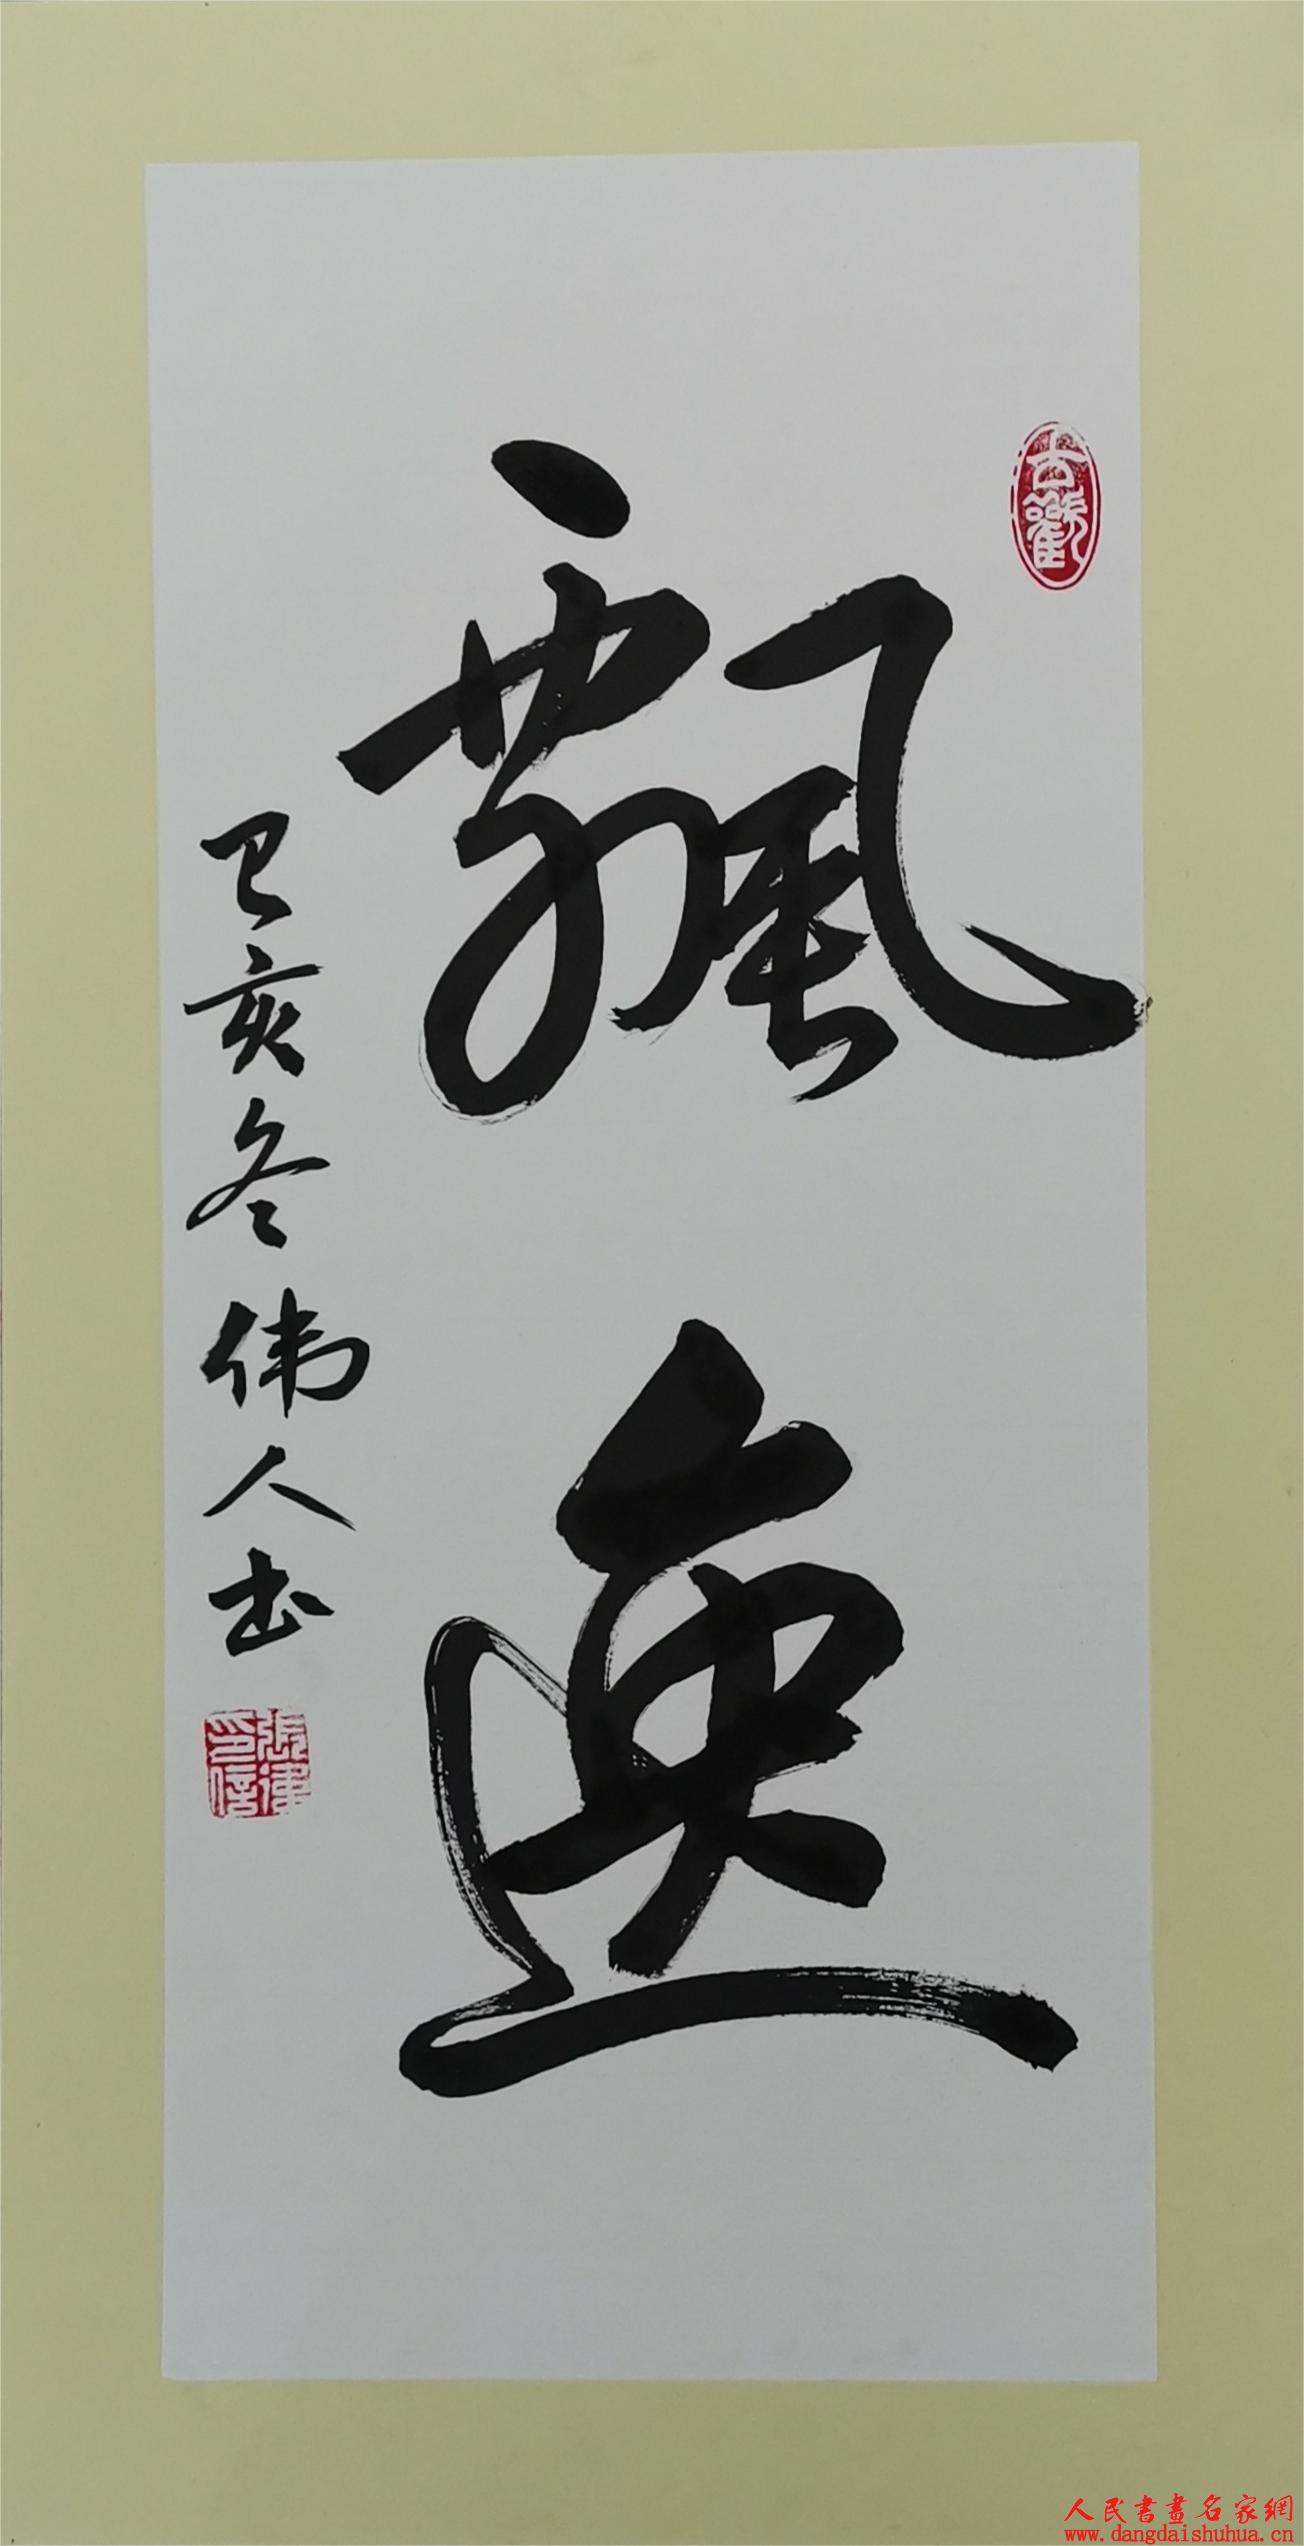 古歡
飄逸
己亥冬伟人书
人民書畫名家網
www.dangdaishuhua.cn